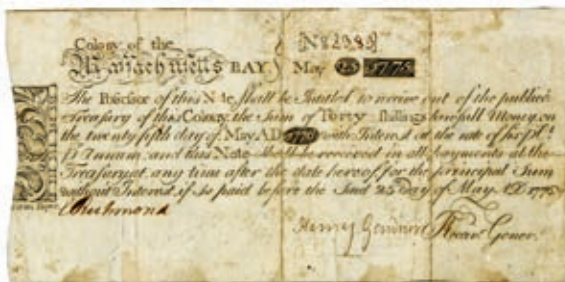 Colony of the
Massachusetts BAY
May 25 1775
The Possessor of this Note shall be Intitled to receive out of the publick
Treasury of this Colony, the Sum of Forty Shillings lawfull Money, on
the twenty fifth day of May AD with Interest at the rate of
Annum and this Note shall be received in all payments at the
Treasury at any time after the date hereof, for the principal Sum
without Interest, if so paid before the Said 25 day of May AD
Richmond
Henry